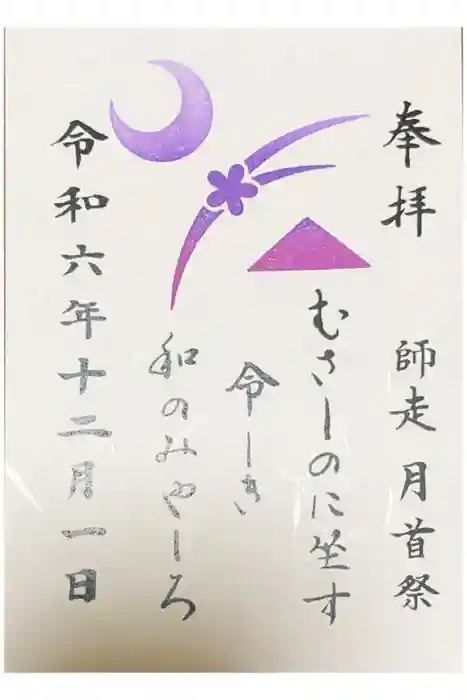 奉拝
師走 月首祭
むさしのに坐す
令しき
和のみやしろ
令和六年十二月一日